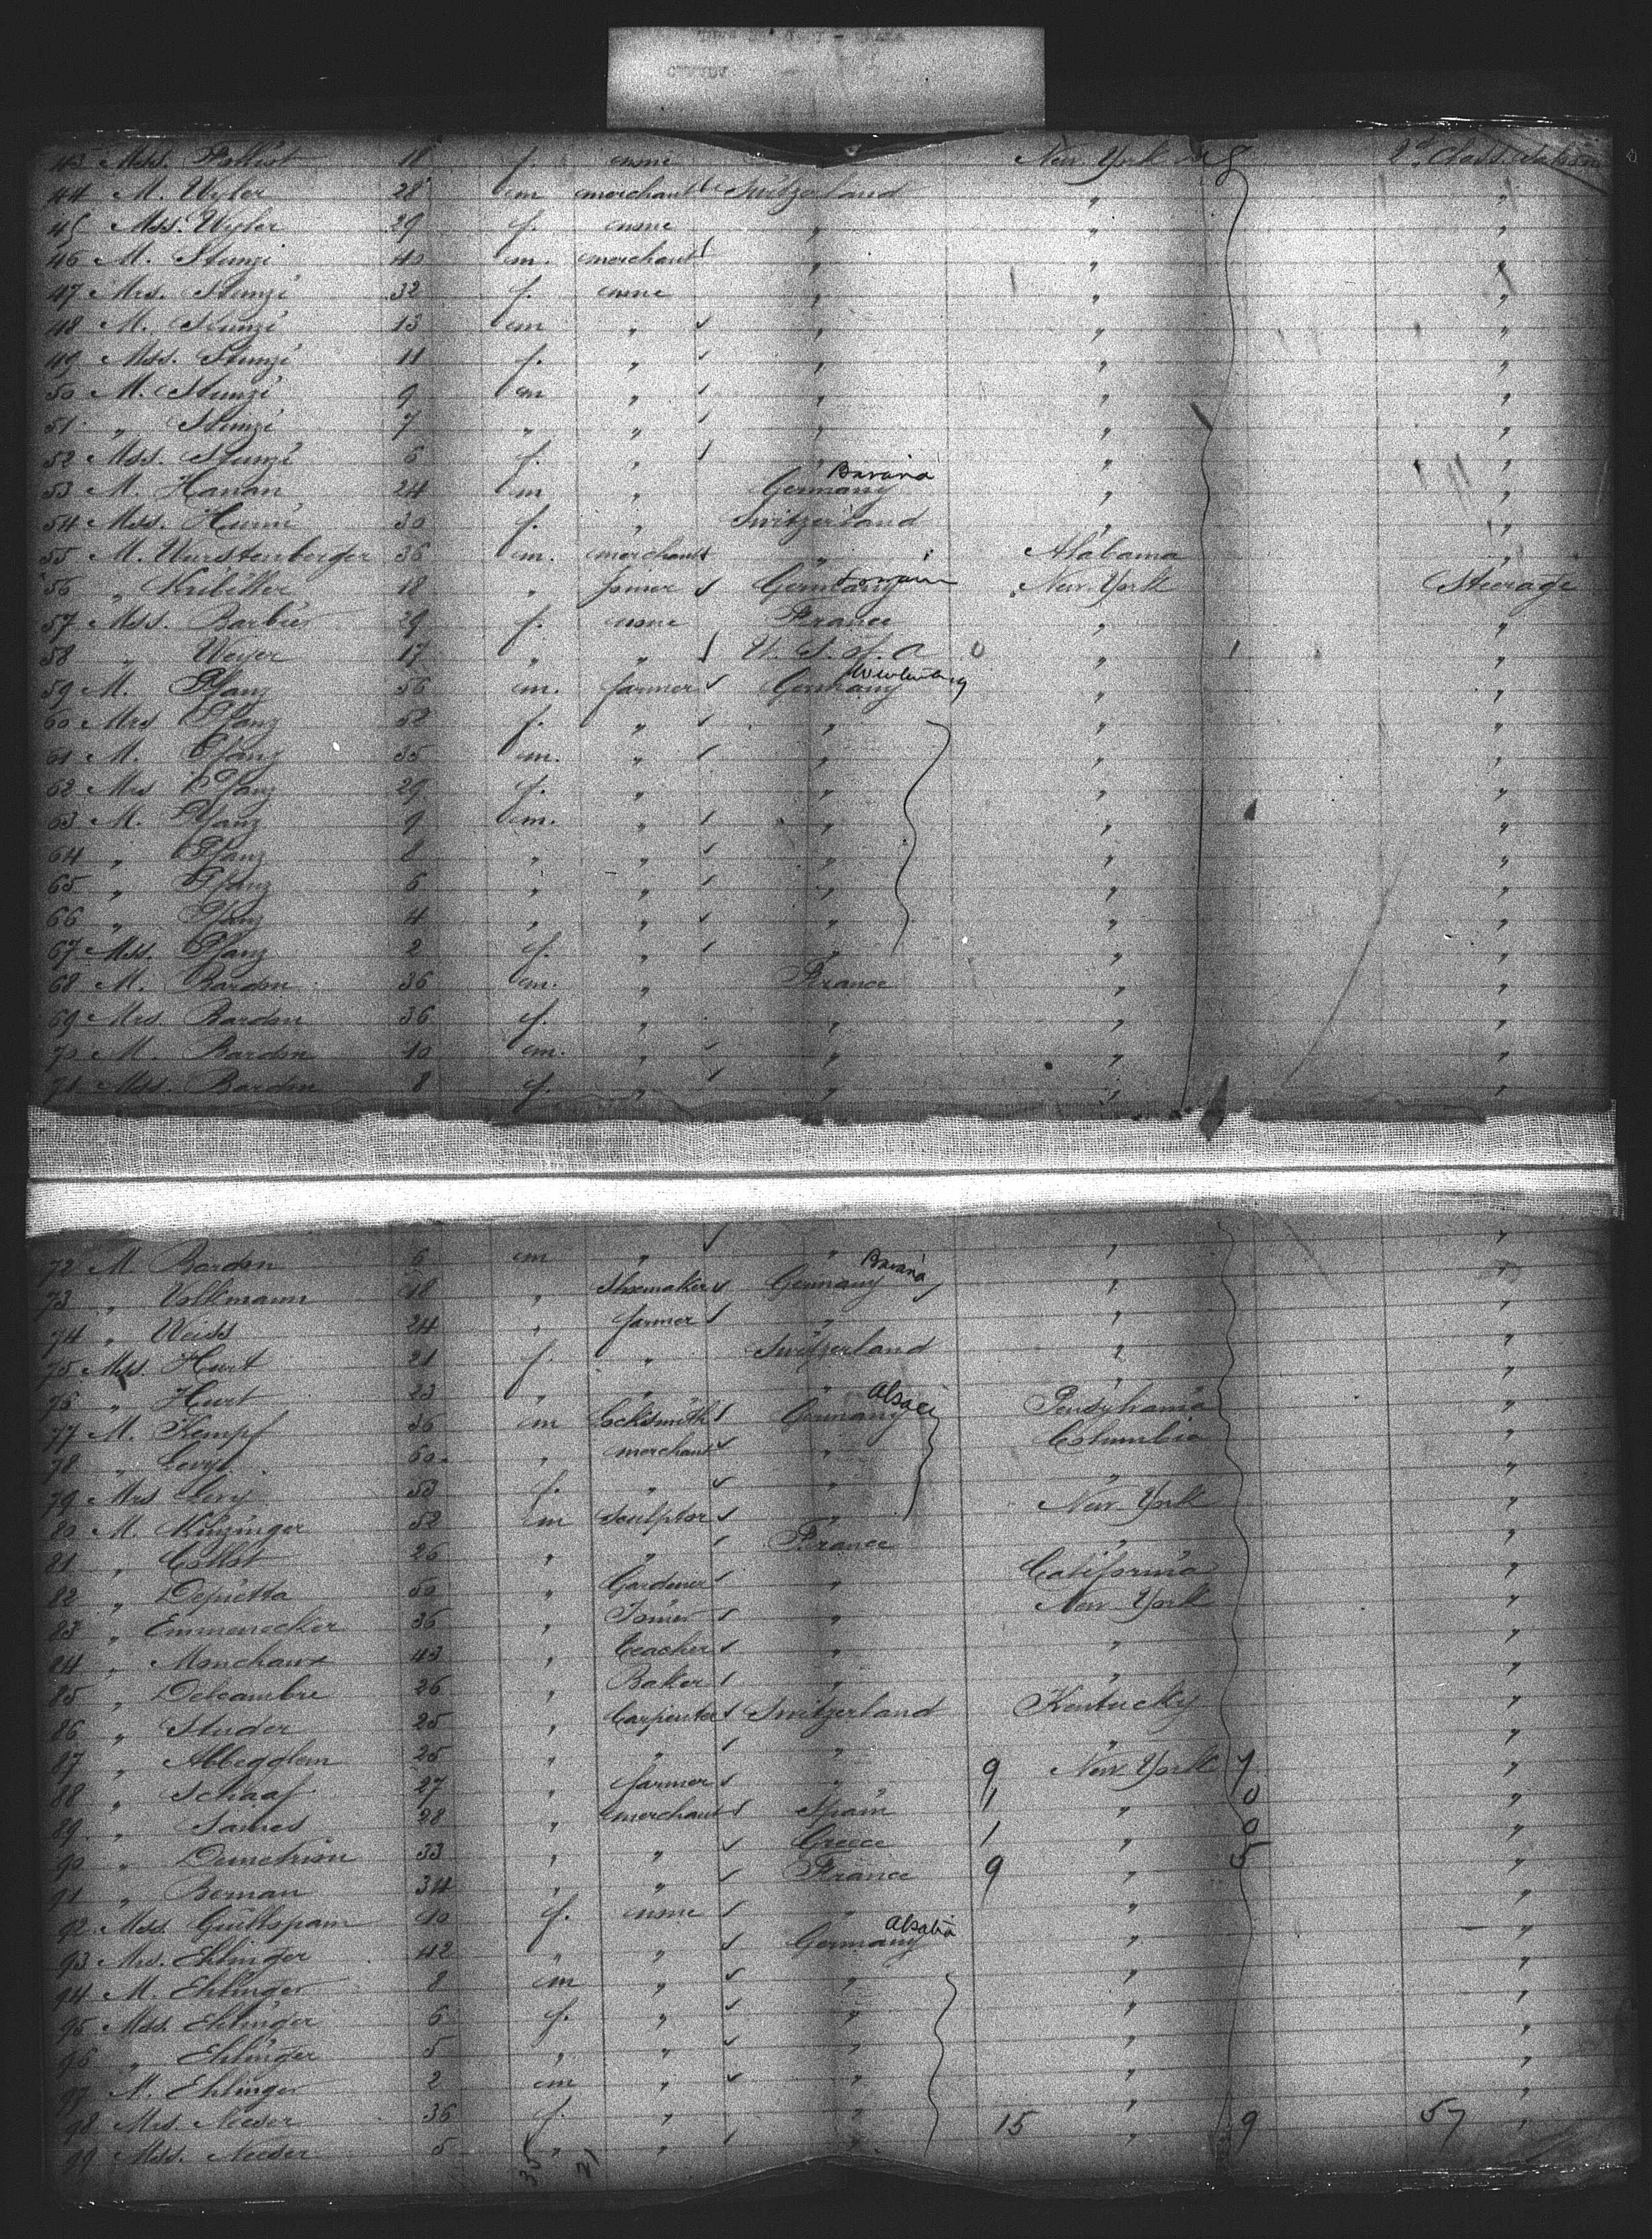 43 Mss. 18 f. none New York 2d Class Saloon
44 M. Wyler 28 m merchant Switzerland "
45 Mss. Wyler 29 f. none " " "
46 M. Stunzi 40 m. merchant " " "
47 Mrs. Stunzi 32 f. none " " "
48 M. Stunzi 13 m " " " "
49 Mss. Stunzi 11 f. " " " "
50 M. Stunzi 9 m " " " "
51 " Stunzi 7 " " " " "
52 Mss. Stunzi 5 f. " " " "
53 M. Hanan 24 m " Germany Bavaria " "
54 Mss. 30 f. " Switzerland " "
55 M. Wurstenberger 36 m. merchant " Alabama "
56 " 18 " Germany New York Steerage
57 Mss. Barbier 29 f. none France " "
58 " Weyer 17 " " U. S. of. A 0 " 1 "
59 M. Pfanz 56 m. farmer Germany " "
60 Mrs Pfanz 52 f. " " " "
61 M. Pfanz 35 m. " " " "
62 Mrs Pfanz 29 f. " " " "
63 M. Pfanz 9 m. " " " "
64 " Pfanz 8 " " " " "
65 " Pfanz 6 " " " " "
66 " Pfanz 4 " " " " "
67 Mss. Pfanz 2 f. " " " "
68 M. Bardon 36 m. " France " "
69 Mrs. Bardon 36 f. " " " "
70 M. Bardon 10 m. " " " "
71 Mss. Bardon 8 f. " " " "
72 M Bardon 6 m " " " "
73 " Volkmann 18 " Shoemaker Germany Bavaria " "
74 " Weiss 24 " farmer " " "
75 Mss. Hurt 21 f. " Switzerland " "
76 " Hurt 23 " " " " "
77 M. Kempf 36 m Locksmith Germany Alsace Pensylvania "
78 " Levy 60 " merchant " Columbia "
79 Mrs Levy 53 f. " " " "
80 M. Kinzinger 52 m Sculptor " New York "
81 " Collot 26 " " France " "
82 " Depietta 50 " Gardener " California "
83 " Emmenecker 36 " " New York "
84 " Monchaux 43 " teacher " " "
85 " Delcambre 26 " Baker " " "
86 " Studer 25 " Carpenter Switzerland Kentucky "
87 " Abbegglen 25 " " " " "
88 " Schaaf 27 " farmer " 9 New York 7 "
89 " 28 " merchant Spain 1 " 0 "
90 " Demetrion 33 " " Greece 1 " 0 "
91 " Bernan 34 " " France 9 " 5 "
92 Mss. 40 f. none " " "
93 Mrs. Ehlinger 42 " " Germany Alsatia " "
94 M. Ehlinger 8 m " " " "
95 Mss. Ehlinger 6 f. " " " "
96 " Ehlinger 5 " " " " "
97 M. Ehlinger 2 m " " " "
98 Mrs. Neeser 36 f. " " 15 " 9 57 "
99 Mss. Neeser 5 " " " "
35 21